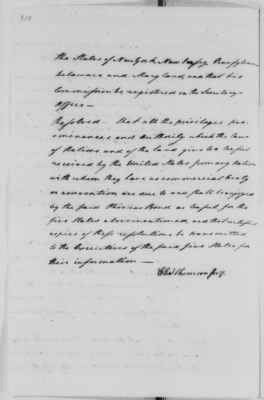 the States of New York New Jersey Pensylvania
Delaware and Maryland, and that his
Commission be registered in the Secretary's
Office —
Resolved. That all the privileges pre-
eminences and authority which the laws
of Nations and of the land, give to a Consul
received by the United States from any Nation
with whom they have no commercial treaty
or convention are due to and shall be enjoyed
by the said Phineas Bond as Consul for the
five States abovementioned, and that
copies of these resolutions be transmitted
to the Executives of the said five States for
their information —
Cha.s Thomson Secy.